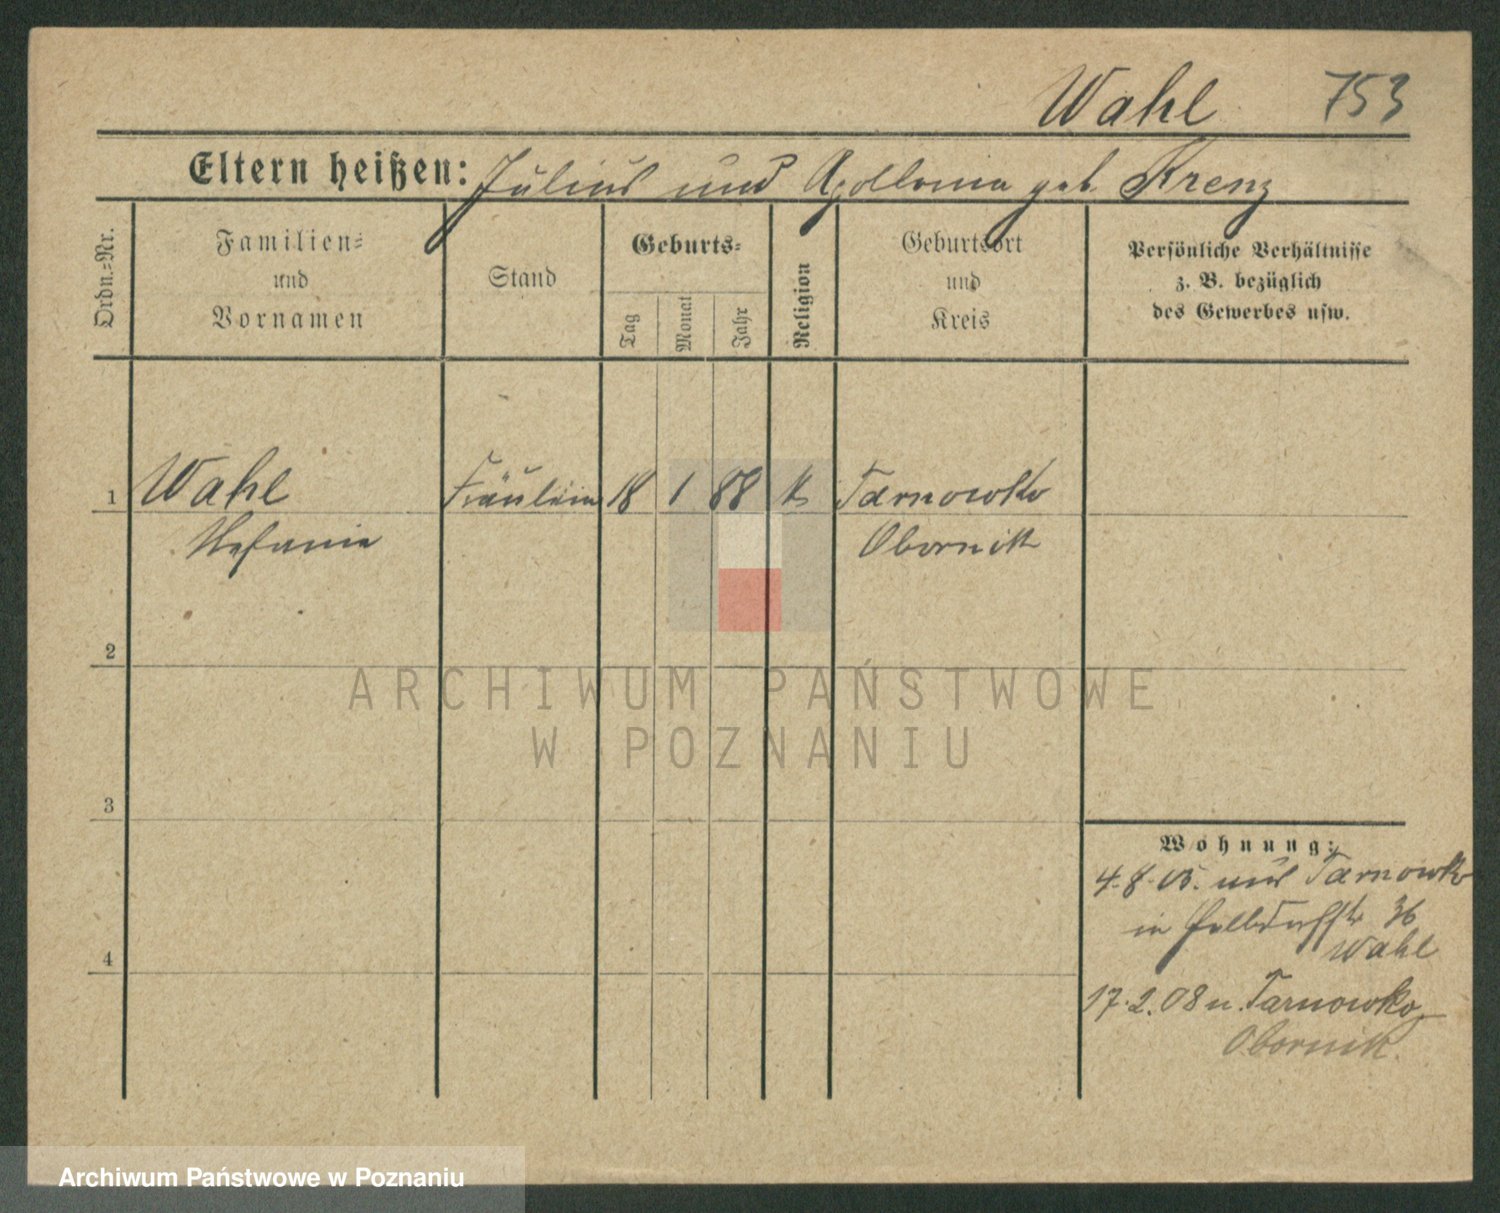 Wahl 753
Eltern heißen: Julius und Apollonia geb. Krenz
Ordn.=Nr.
Familien=
und
Vornamen
Stand
Geburts=
Tag
Monat
Jahr
Religion
Geburtsort
und
Kreis
Persönliche Verhältnisse
z. B. bezüglich
des Gewerbes usw.
1 Wahl Fräulein 18 1 88 k Tarnowko
Stefanie Obornik
2
3
4
Wohnung:
4.8.05. aus Tarnowko
in 36
Wahl
17.2.08 n. Tarnowko
Obornik.
ARCHIWUM PAŃSTWOWE
W POZNANIU
Archiwum Państwowe w Poznaniu